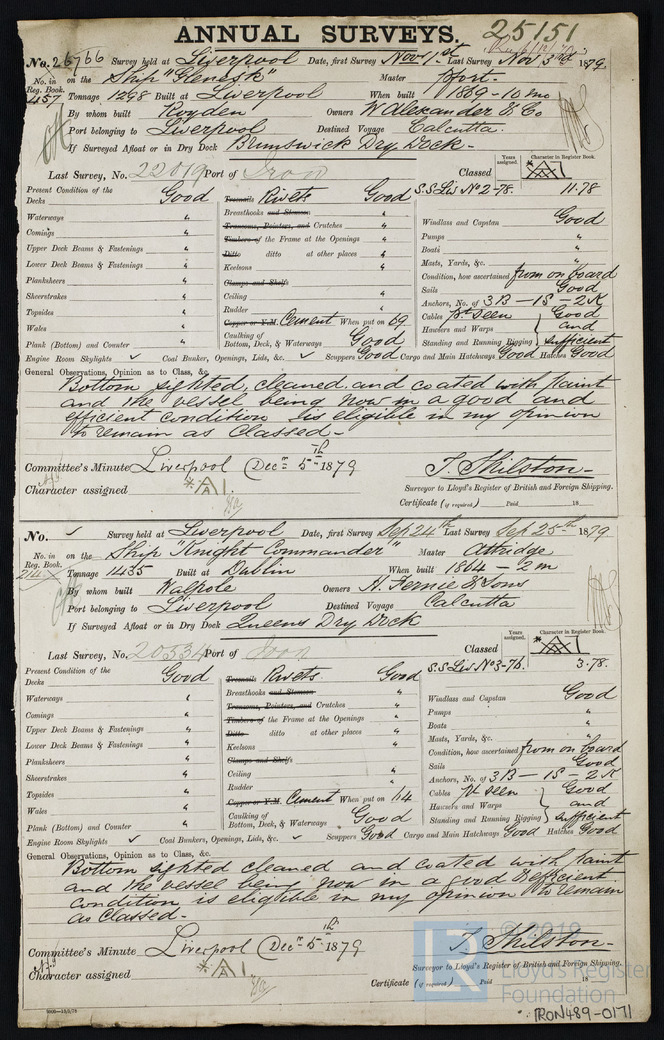 ANNUAL SURVEYS. 25151
No. 26766 Survey held at Liverpool Date, first Survey Nov 1st Last Survey Nov 3rd 1879
No. in on the Ship "Glenesk" Master
Reg. Book.
457 Tonnage 1298 Built at Liverpool When built 1869 - 10 mo
By whom built Royden Owners W Alexander & Co
Port belonging to Liverpool Destined Voyage Calcutta.
If Surveyed Afloat or in Dry Dock Brunswick Dry Dock -
Last Survey, No. 22019 Port of Iron Classed Years assigned. Character in Register Book. A1
Present Condition of the Good Treenails Rivets Good S.S. Liv No 2-78. 11.78
Decks
Breasthooks and Stemson "
Waterways " Transoms, Pointers, and Crutches " Windlass and Capstan Good
Comings " Timbers of the Frame at the Openings " Pumps "
Upper Deck Beams & Fastenings " Ditto ditto at other places " Boats "
Lower Deck Beams & Fastenings " Keelsons " Masts, Yards, &c. "
Planksheers " Clamps and Shelfs Condition, how ascertained from on board
Sheerstrakes " Ceiling " Sails Good
Topsides " Rudder " Anchors, No. of 3B - 1S - 2K
Wales " Copper or Y.M. Cement When put on 69 Cables pt seen Good
Plank (Bottom) and Counter " Caulking of Bottom, Deck, & Waterways Good Hawsers and Warps and
Standing and Running Rigging sufficient
Engine Room Skylights ✓ Coal Bunker, Openings, Lids, &c. ✓ Scuppers Good Cargo and Main Hatchways Good Hatches Good
General Observations, Opinion as to Class, &c.
Bottom sighted, cleaned, and coated with paint
and the vessel being now in a good and
efficient condition is eligible in my opinion
to remain as Classed -
Committee's Minute Liverpool Decr 5th 1879 T. Shilston -
Character assigned A1 Surveyor to Lloyd's Register of British and Foreign Shipping.
Certificate (if required) Paid 18
No. ✓ Survey held at Liverpool Date, first Survey Sep 24th Last Survey Sep 25th 1879
No. in on the Ship "Knight Commander" Master Attridge
Reg. Book.
214 Tonnage 1435 Built at Dublin When built 1864 - 2 m
By whom built Walpole Owners H. Fernie & Sons
Port belonging to Liverpool Destined Voyage Calcutta
If Surveyed Afloat or in Dry Dock Queens Dry Dock
Last Survey, No. 20334 Port of Iron Classed Years assigned. Character in Register Book. A1
Present Condition of the Good Treenails Rivets Good S.S. Liv No 3-76. 3.78.
Decks
Breasthooks and Stemson "
Waterways " Transoms, Pointers, and Crutches " Windlass and Capstan Good
Comings " Timbers of the Frame at the Openings " Pumps "
Upper Deck Beams & Fastenings " Ditto ditto at other places " Boats "
Lower Deck Beams & Fastenings " Keelsons " Masts, Yards, &c. "
Planksheers " Clamps and Shelfs Condition, how ascertained from on board
Sheerstrakes " Ceiling " Sails Good
Topsides " Rudder " Anchors, No. of 3B - 1S - 2K
Wales " Copper or Y.M. Cement When put on 64 Cables pt seen Good
Plank (Bottom) and Counter " Caulking of Bottom, Deck, & Waterways Good Hawsers and Warps and
Standing and Running Rigging sufficient
Engine Room Skylights ✓ Coal Bunkers, Openings, Lids, &c. ✓ Scuppers Good Cargo and Main Hatchways Good Hatches Good
General Observations, Opinion as to Class, &c.
Bottom sighted cleaned and coated with paint
and the vessel being now in a good & efficient
condition is eligible in my opinion to remain
as Classed -
Committee's Minute Liverpool Decr 5th 1879 T. Shilston -
Character assigned A1 Surveyor to Lloyd's Register of British and Foreign Shipping.
Certificate (if required) Paid 18
© 2019
Lloyd's Register
Foundation
IRON489-0171